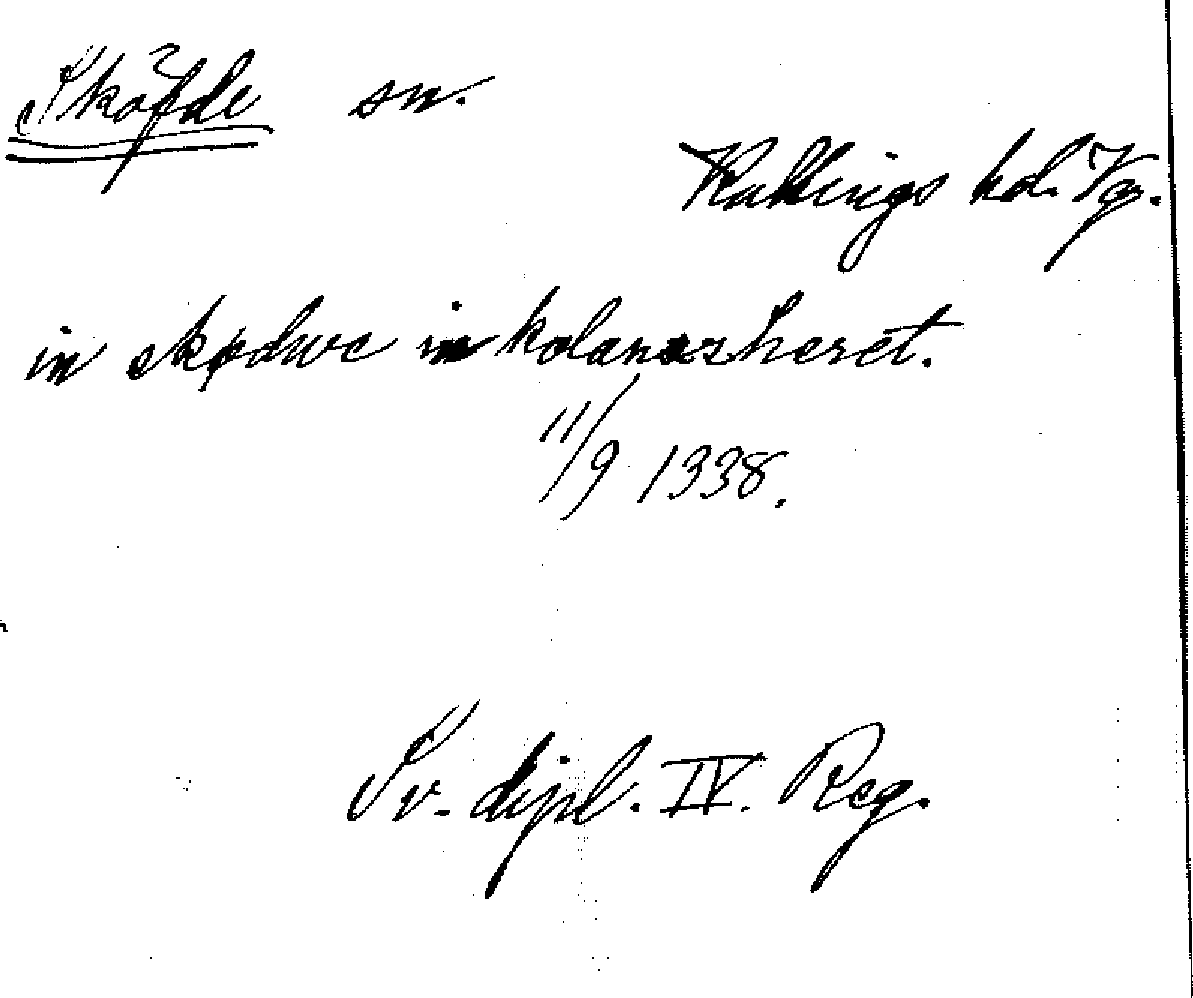 Sköfde sn.
Kåkinds hd. Vg.
in skødwe in kolanasheret.
11/9 1338.
Sv. dipl. IV. Reg.